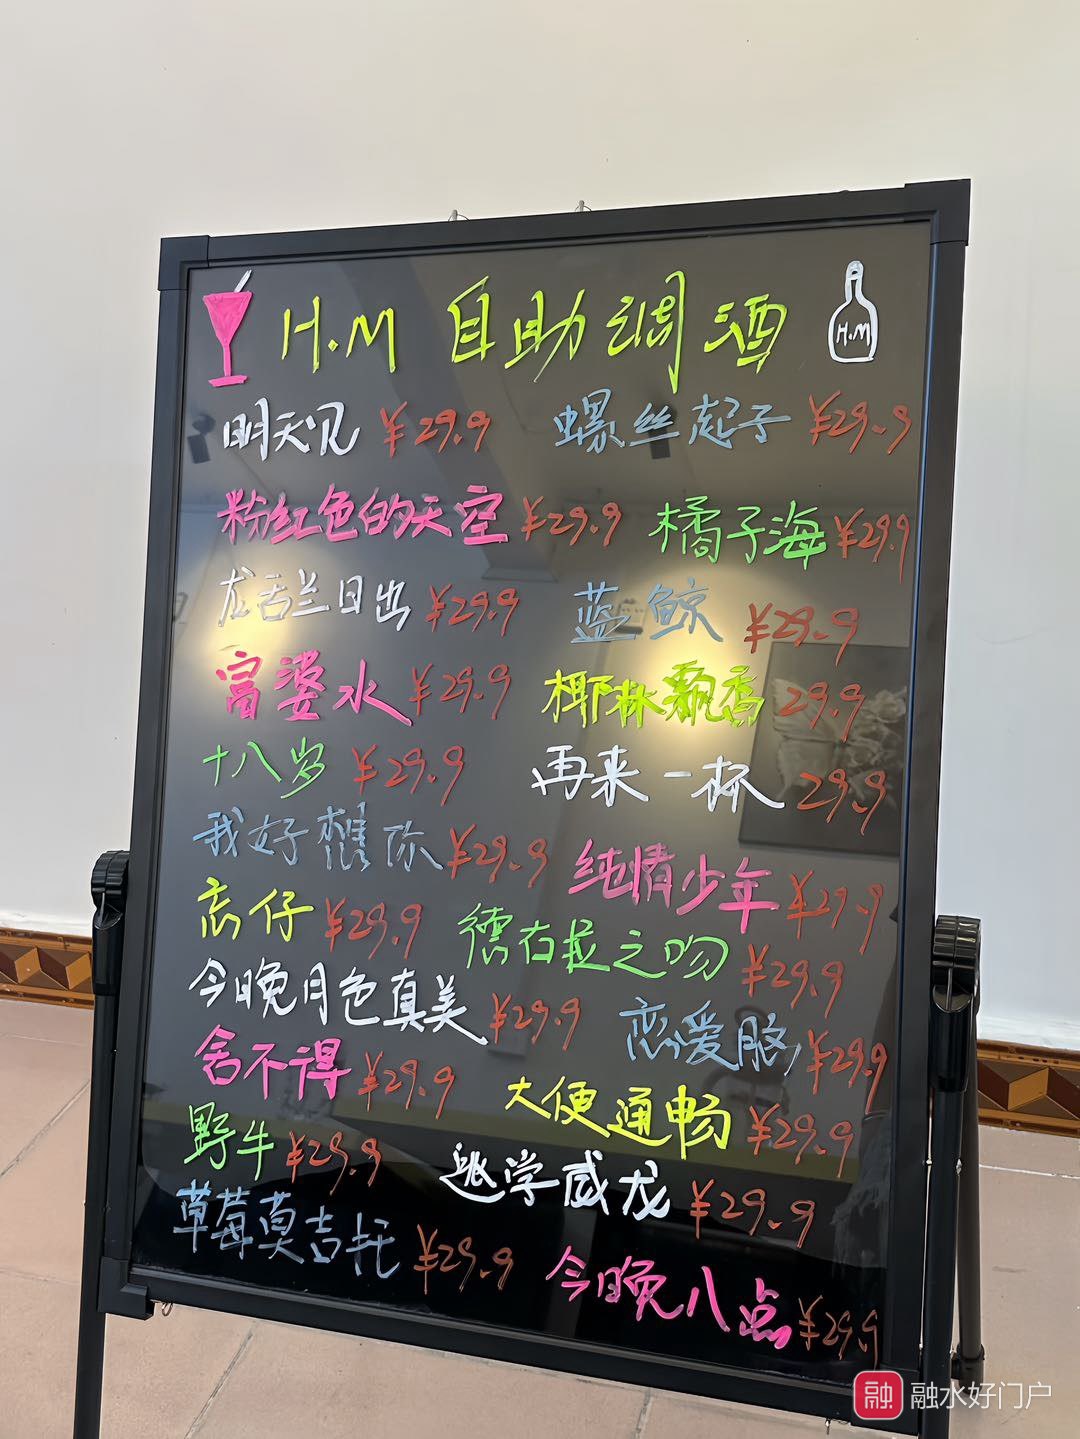 H.M 自助调酒
H.M
明天见 ¥29.9 螺丝起子 ¥29.9
粉红色的天空 ¥29.9 橘子海 ¥29.9
龙舌兰日出 ¥29.9 蓝鲸 ¥29.9
富婆水 ¥29.9 椰林飘香 29.9
十八岁 ¥29.9 再来一杯 29.9
我好想你 ¥29.9 纯情少年 ¥29.9
忘仔 ¥29.9 德古拉之吻 ¥29.9
今晚月色真美 ¥29.9 恋爱脑 ¥29.9
舍不得 ¥29.9 大便通畅 ¥29.9
野牛 ¥29.9 逃学威龙 ¥29.9
草莓莫吉托 ¥29.9 今晚八点 ¥29.9
融 融水好门户